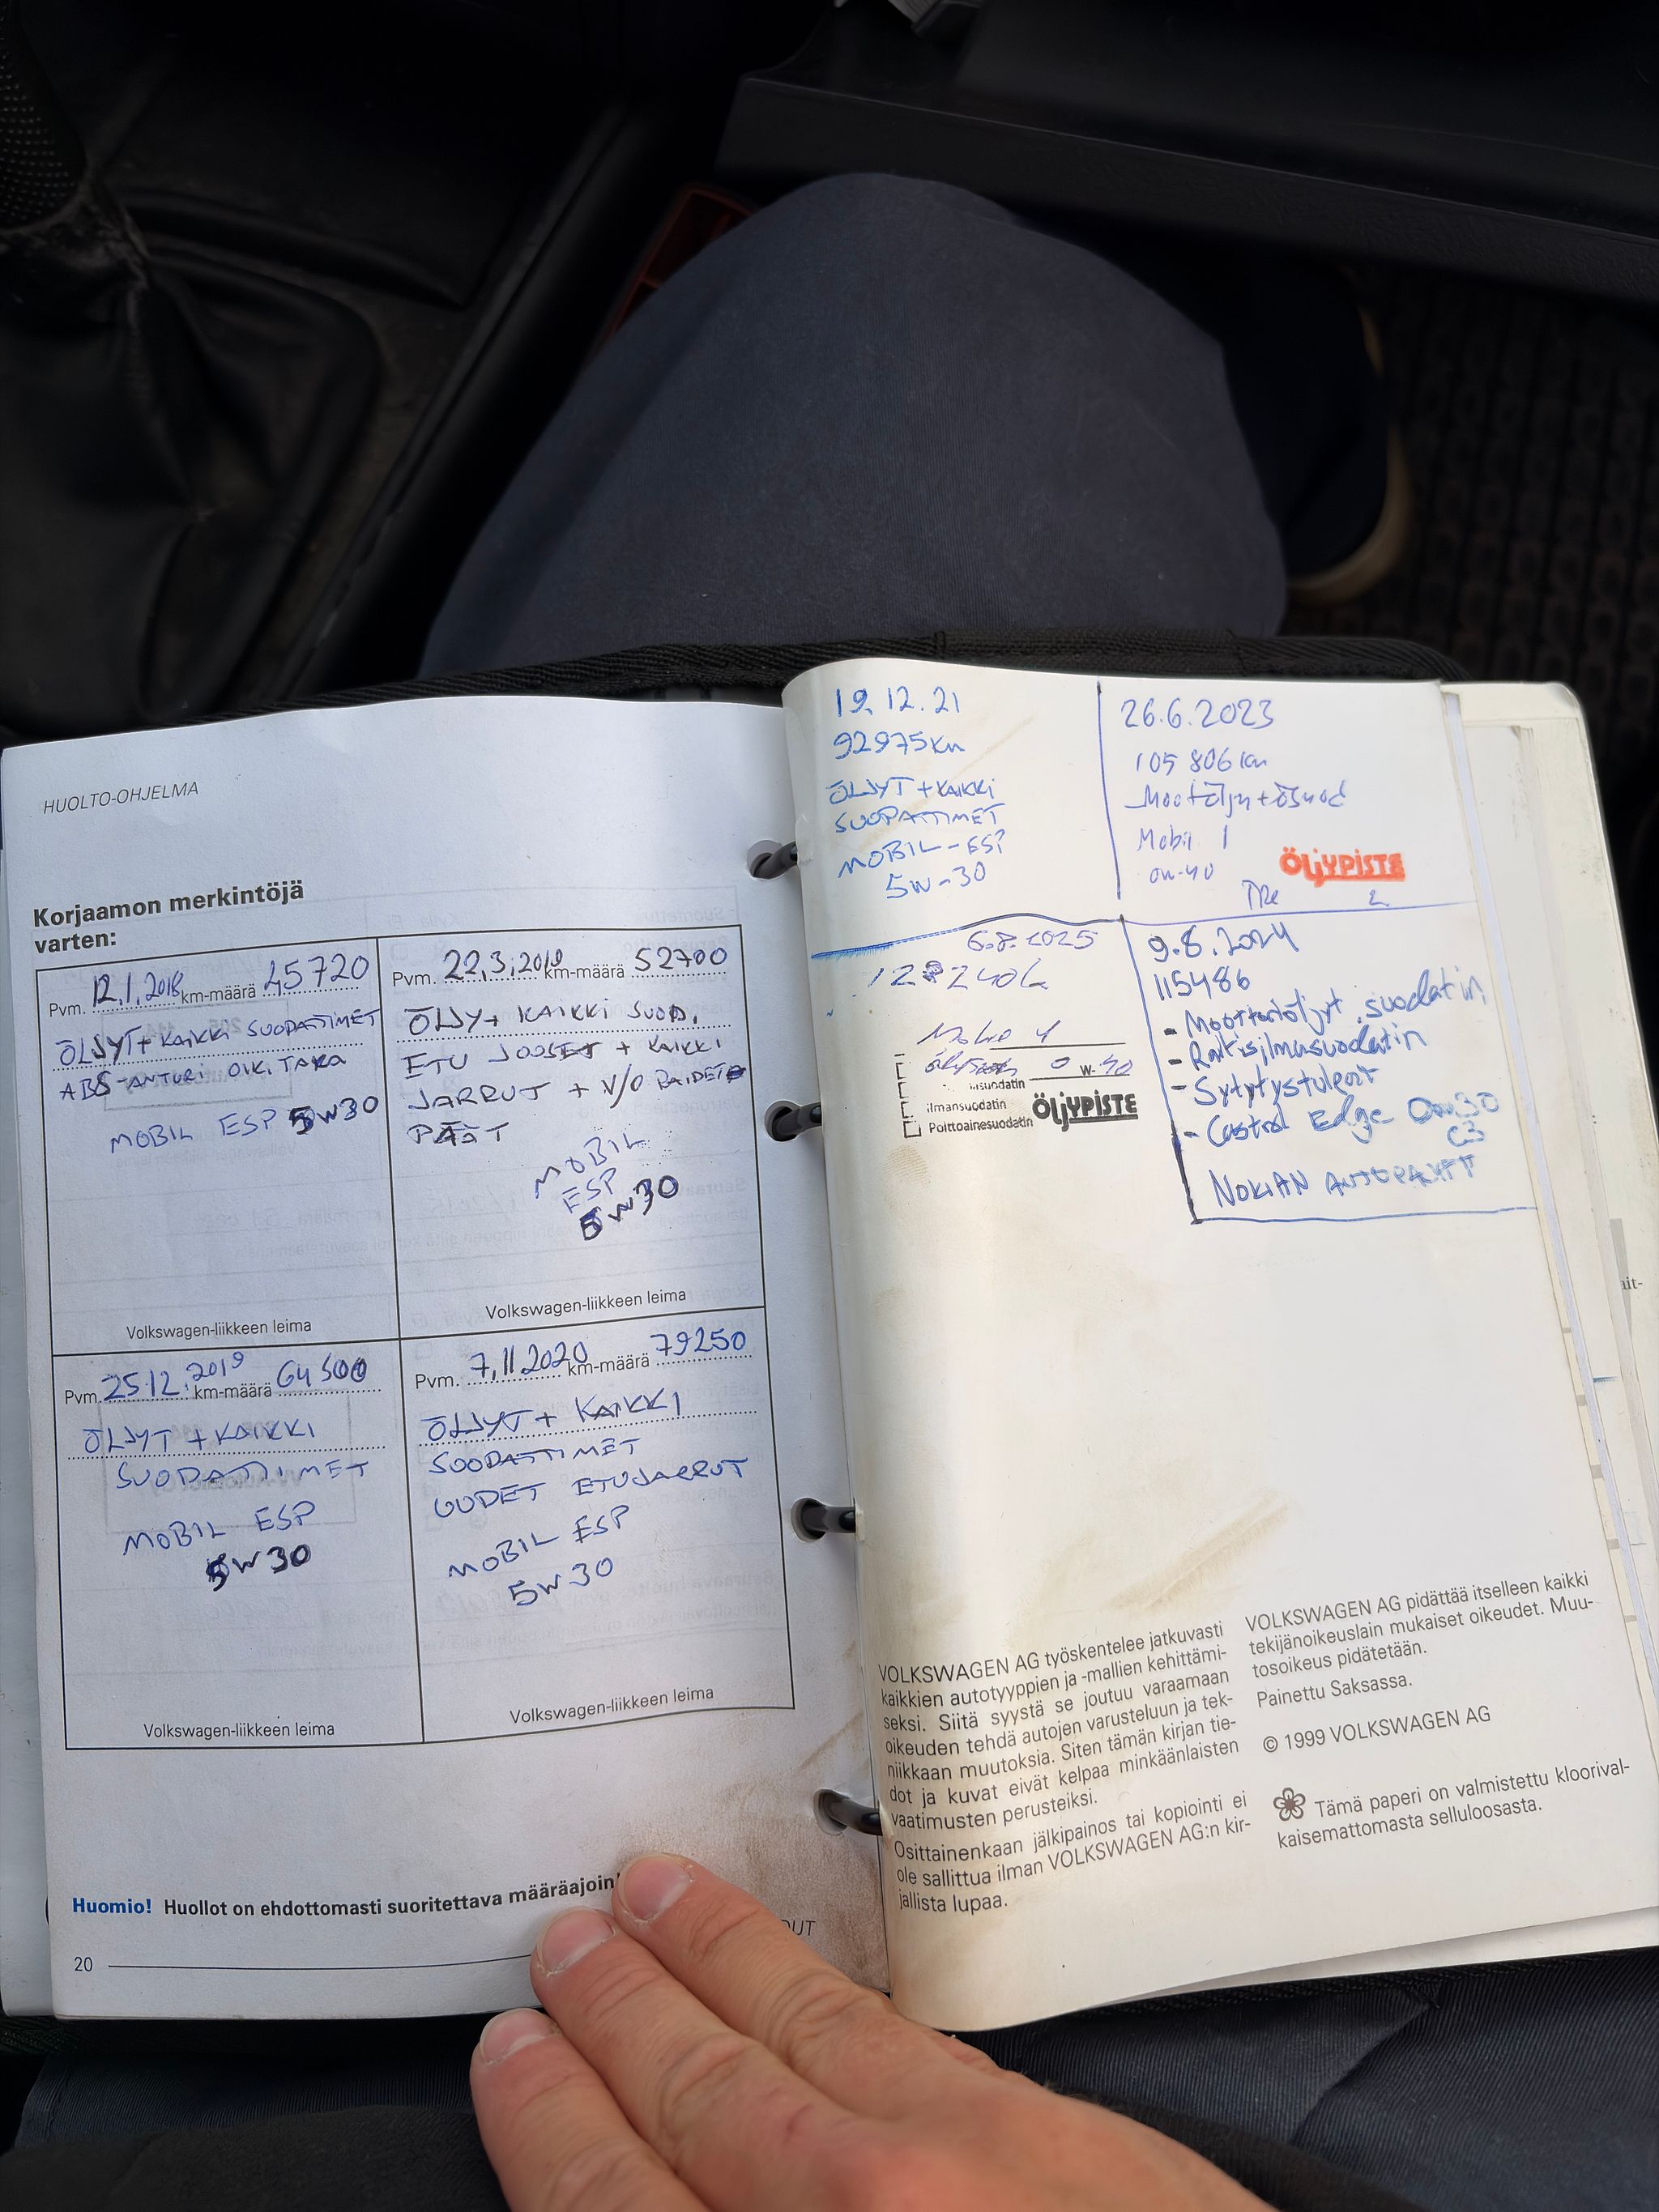 HUOLTO-OHJELMA
Korjaamon merkintöjä
varten:
Pvm. 12.1.2018 km-määrä 45720
ÖLJYT + KAIKKI SUODATTIMET
ABS-ANTURI OIK. TAKA
MOBIL ESP 5W30
Volkswagen-liikkeen leima
Pvm. 22.3.2019 km-määrä 52700
ÖLJY+ KAIKKI SUOD.
ETU JOUSET + KAIKKI
JARRUT + V/O RAIDE
PÄÄT
MOBIL
ESP
5W30
Volkswagen-liikkeen leima
Pvm. 25.12.2019 km-määrä 64500
ÖLJYT + KAIKKI
SUODATTIMET
MOBIL ESP
5W30
Volkswagen-liikkeen leima
Pvm. 7.11.2020 km-määrä 79250
ÖLJYT + KAIKKI
SUODATTIMET
UUDET ETUJARRUT
MOBIL ESP
5W30
Volkswagen-liikkeen leima
Huomio! Huollot on ehdottomasti suoritettava määräajoin
20
19.12.21
92975km
ÖLJYT + KAIKKI
SUODATTIMET
MOBIL-ESP
5W-30
26.6.2023
105 806 km
Mootöljy+ösuod
Mobil 1
0w-40
ÖLJYPISTE
TRe 2
6.8.2025
0 W-40
ilmansuodatin
Polttoainesuodatin
ÖLJYPISTE
9.8.2024
115486
- Moottoriöljyt, suodatin
- Raitisilmasuodatin
- Sytytystulpat
- Castrol Edge 0w30
C3
NOKIAN AUTOPAJATT
VOLKSWAGEN AG työskentelee jatkuvasti
kaikkien autotyyppien ja -mallien kehittämi-
seksi. Siitä syystä se joutuu varaamaan
oikeuden tehdä autojen varusteluun ja tek-
niikkaan muutoksia. Siten tämän kirjan tie-
dot ja kuvat eivät kelpaa minkäänlaisten
vaatimusten perusteiksi.
Osittainenkaan jälkipainos tai kopiointi ei
ole sallittua ilman VOLKSWAGEN AG:n kir-
jallista lupaa.
VOLKSWAGEN AG pidättää itselleen kaikki
tekijänoikeuslain mukaiset oikeudet. Muu-
tosoikeus pidätetään.
Painettu Saksassa.
© 1999 VOLKSWAGEN AG
Tämä paperi on valmistettu kloorival-
kaisemattomasta selluloosasta.